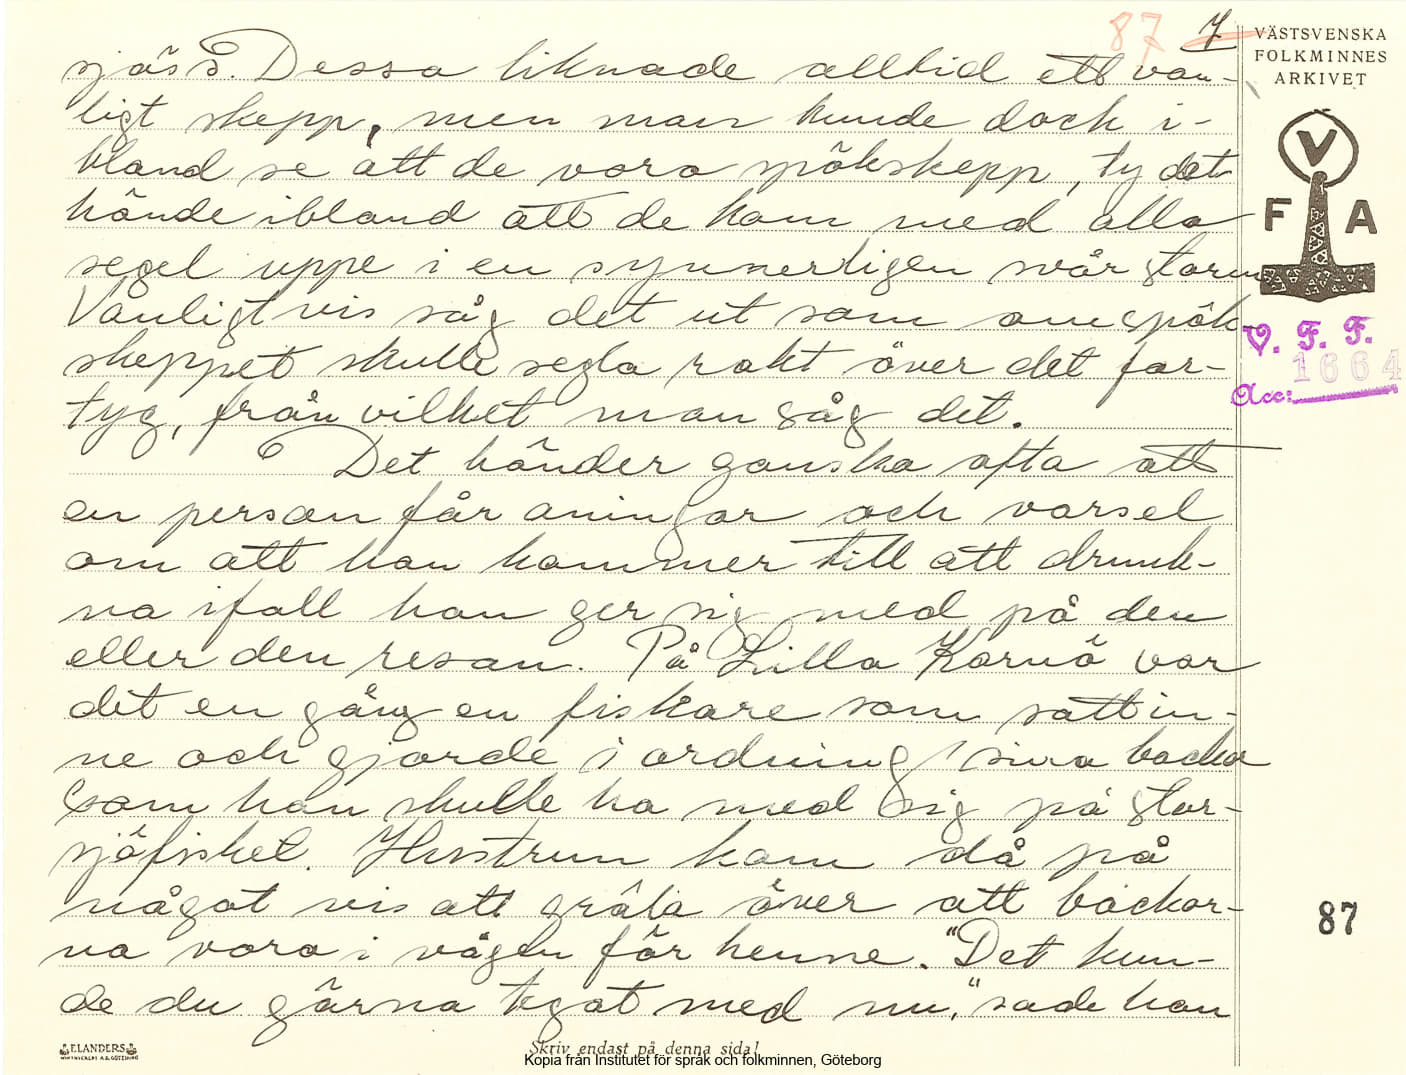 87 7
VÄSTSVENSKA
FOLKMINNES
ARKIVET
sjöss. Dessa liknade alltid ett van-
ligt skepp, men man kunde dock i-
bland se att de voro spökskepp, ty det
hände ibland att de kom med alla
segel uppe i en synnerligen svår storm
Vanligtvis såg det ut som om spök-
skeppet skulle segla rakt över det far-
tyg, från vilket man såg det.
Det händer ganska ofta att
en person får aningar och varsel
om att han kommer till att drunk-
na ifall han ger sig med på den
eller den resan. På Lilla Kornö var
det en gång en fiskare som satt in-
ne och gjorde i ordning sina backor
som han skulle ha med sig på stor-
sjöfisket. Hustrun kom då på
något vis att gräla över att backor-
na voro i vägen för henne. "Det kun-
de du gärna tegat med nu," sade han
V
F A
V. F. F.
1664
Acc:
87
ELANDERS
Skriv endast på denna sida!
Kopia från Institutet för språk och folkminnen, Göteborg